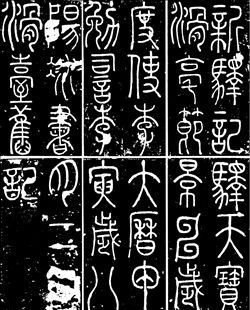 新驛記
滑亭節
度使李
勉李
陽冰書
滑臺舊
驛天寶
景申歲
大曆甲
寅歲八
月
記